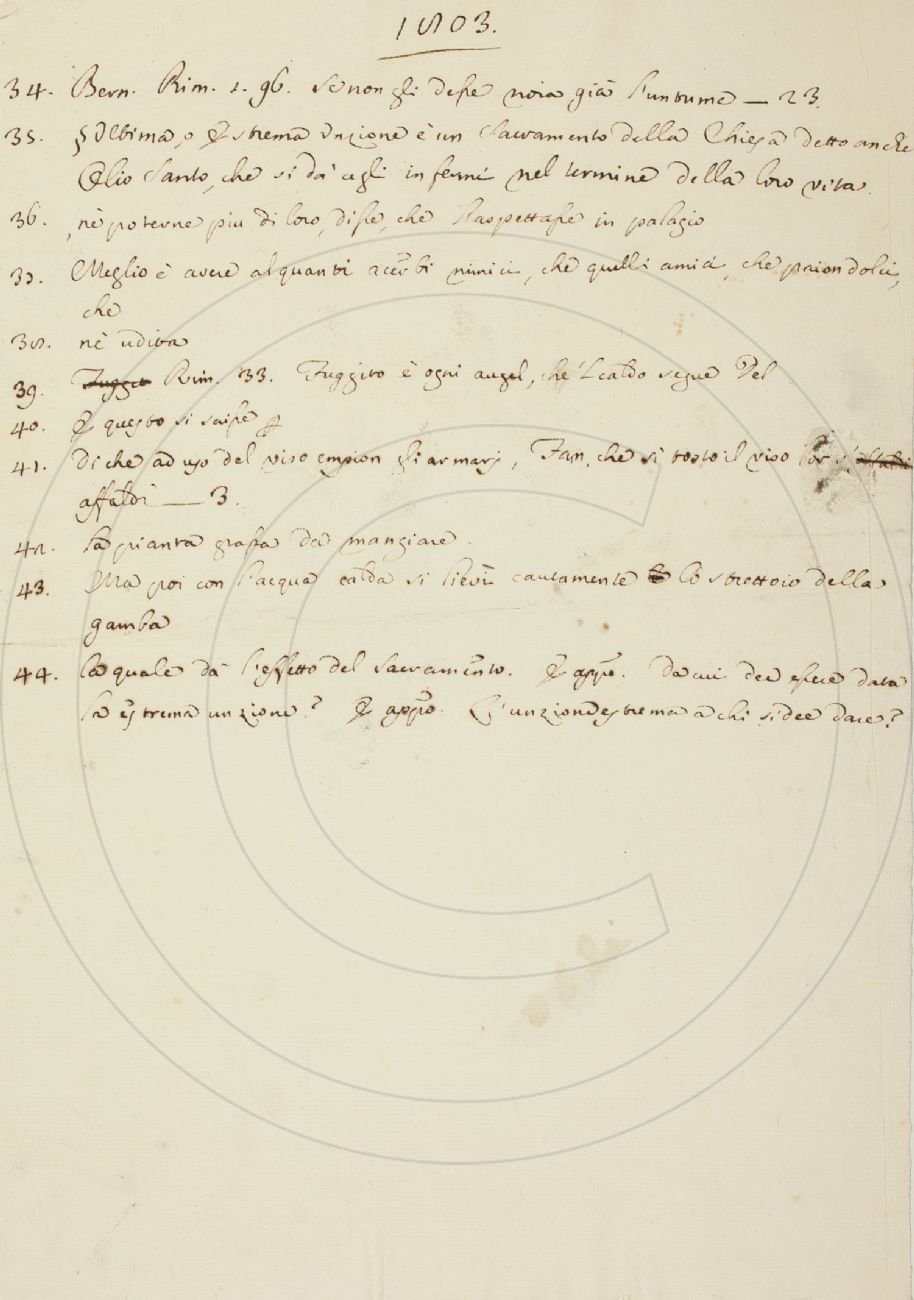 1803.
34. Bern. Rim. 1. 96. Se non gli desse noia già l'untume — 23.
35. § Ultima, o Estrema Unzione è un Sacramento della Chiesa detto anche
Olio Santo, che si dà agli infermi nel termine della loro vita.
36. , nè poterne più di loro, disse, che l'aspettasse in palagio
37. Meglio è avere alquanti acerbi nimici, che quelli amici, che paion dolci,
che
38. nè udiva
39. Rim. 33. Fuggito è ogni augel, che 'l caldo segue Del
40. E questo si scisse
41. Di che ad uso del viso empion gli armarj, Fan, che sì tosto il viso lor s'
affaldi — 3.
42. la pianta grassa da mangiare.
43. Ma poi con l'acqua calda si lievi cautamente lo strettoio della
gamba
44. la quale dà l'effetto del Sacramento. E appo. Da cui dee essere data
la estrema unzione? E appo. L'unzione estrema a chi si dee dare?